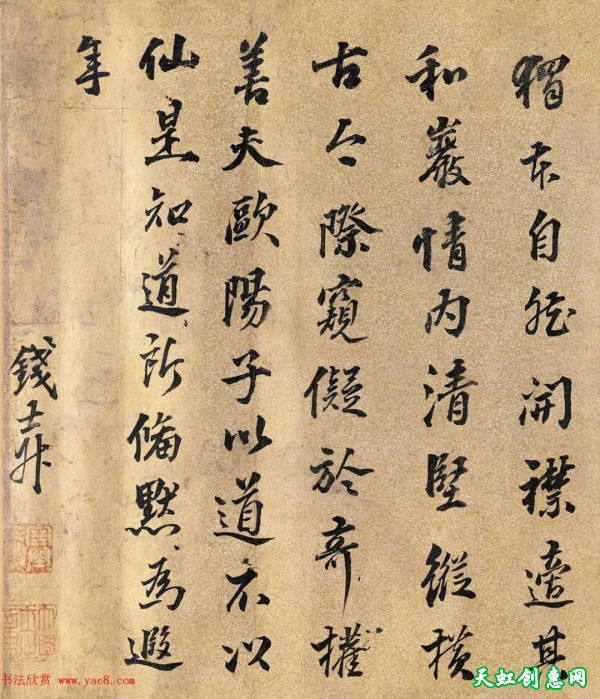 獨本自然開襟適其
和巖情内清堅縱橫
古今際窺儗於奇權
善夫歐陽子以道不以
仙是知道所脩默為遐
年
錢士升
书法欣赏 www.yac8.com
天虹创惠网